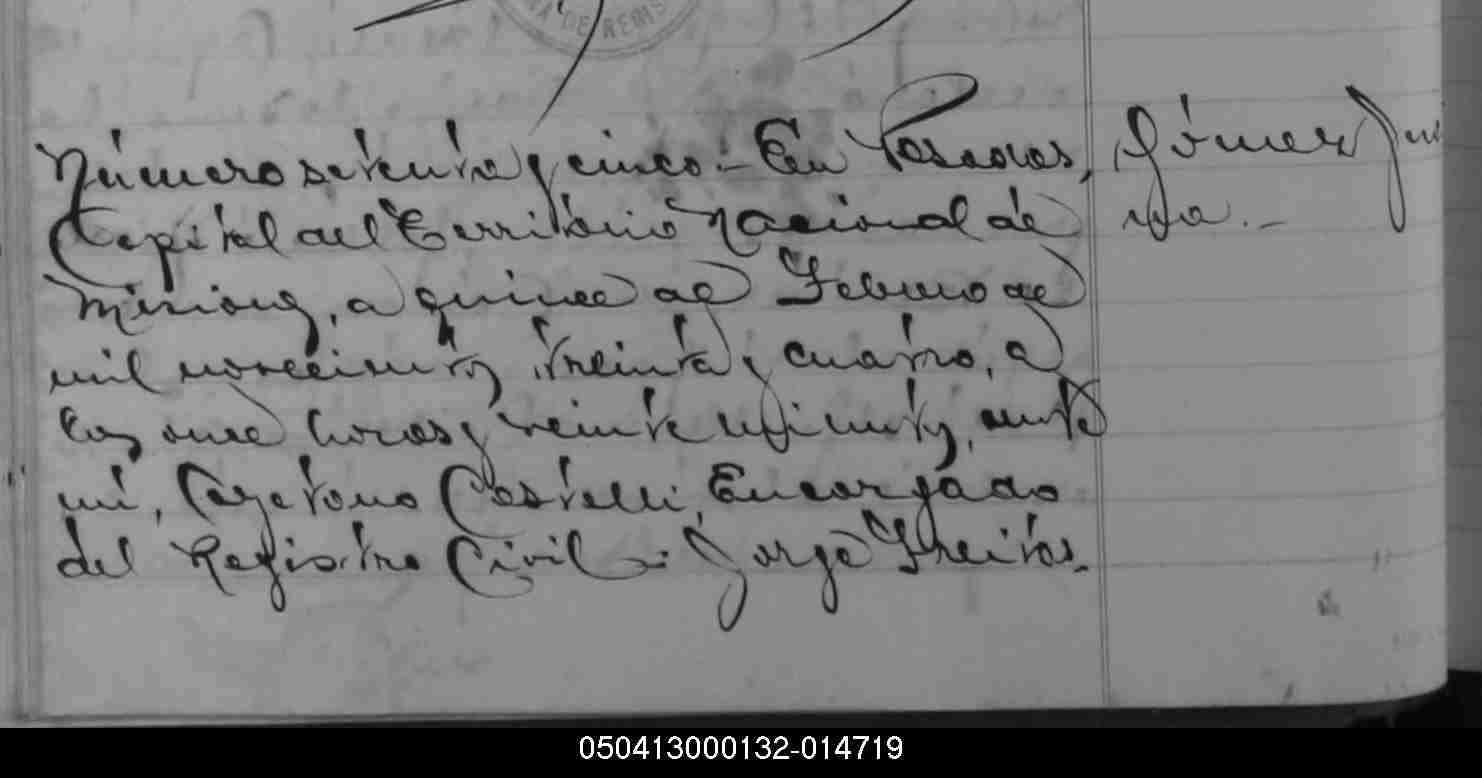 NA DE REMIS
Número setenta y cinco.- En Posadas,
Capital del Territorio Nacional de
Misiones, a quince de Febrero de
mil novecientos treinta y cuatro, a
las once horas y veinte minutos, ante
mi, Cayetano Castelli, Encargado
del Registro Civil.: Jorge Freitas.
Gómez
050413000132-014719